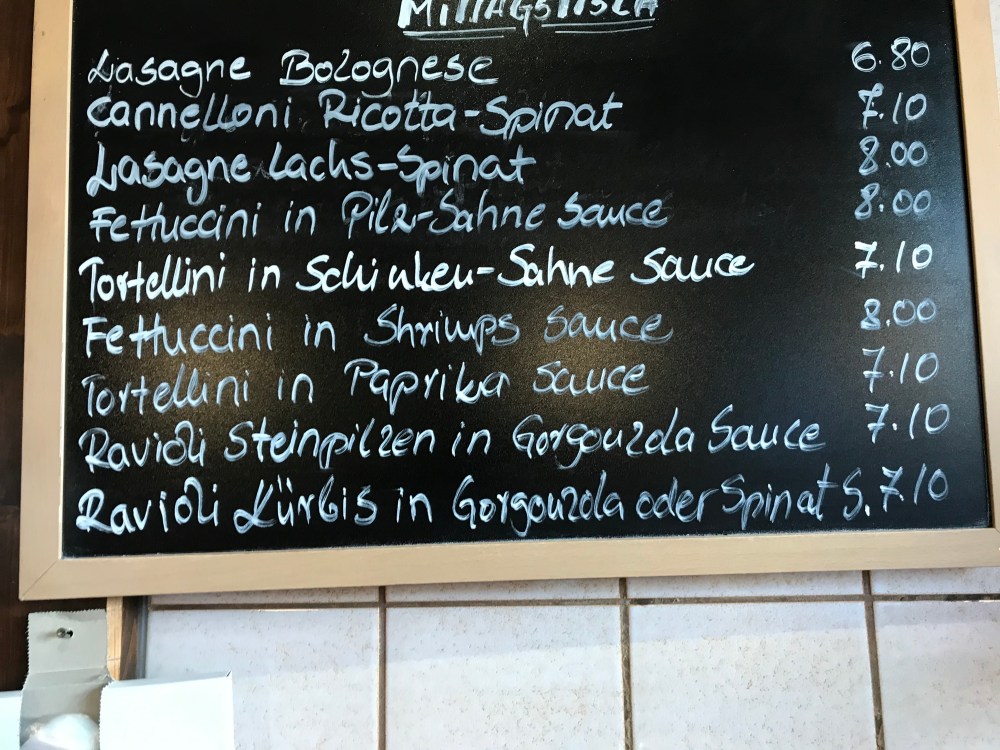 Mittagstisch
Lasagne Bolognese 6.80
Cannelloni Ricotta-Spinat 7.10
Lasagne Lachs-Spinat 8.00
Fettuccini in Pilz-Sahne Sauce 8.00
Tortellini in Schinken-Sahne Sauce 7.10
Fettuccini in Shrimps Sauce 8.00
Tortellini in Paprika Sauce 7.10
Ravioli Steinpilzen in Gorgonzola Sauce 7.10
Ravioli Kürbis in Gorgonzola oder Spinat S. 7.10